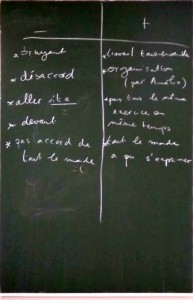 -
* bruyant
* désaccord
* aller vite
* devant
* pas accord de
tout le monde
:(
+
* travail tous ensemble
* organisation
(par Amélie)
* pas tous le même
exercice en
même temps
* tout le monde
a pu s'exprimer